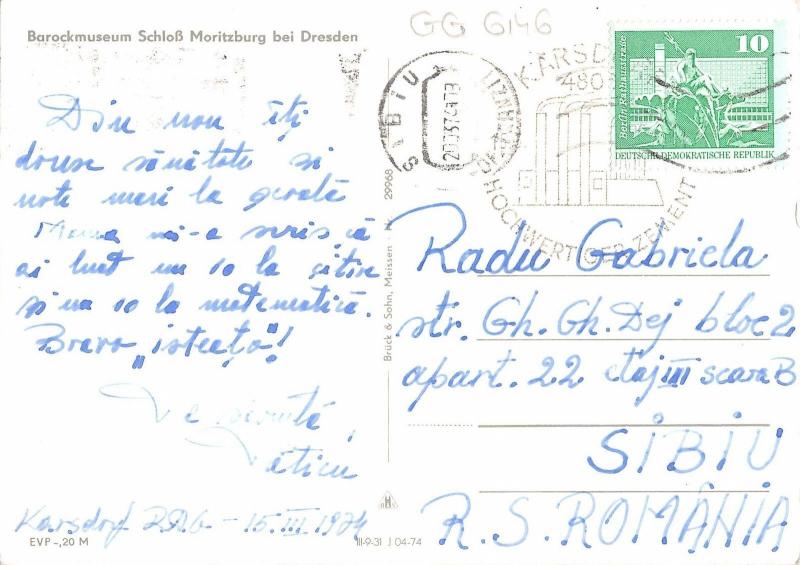 Barockmuseum Schloß Moritzburg bei Dresden
GG 6146
Din nou îți
doresc sănătate și
note mari la școală
Mama mi-a scris că
ai luat un 10 la citire
și un 10 la matematică.
Bravo „isteațo"!
Te sărută,
Karsdorf R.D.G. - 15.III.1974
EVP -,20 M
III-9-31 J 04-74
Brück & Sohn, Meissen Nr. 29968
SIBIU
KARSD
4803
HOCHWERTIGER ZEMENT
10
Berlin, Rathausstraße
DEUTSCHE DEMOKRATISCHE REPUBLIK
Radu Gabriela
str. Gh. Gh. Dej bloc 2
apart. 22 etaj III scara B
SIBIU
R. S. ROMÂNIA